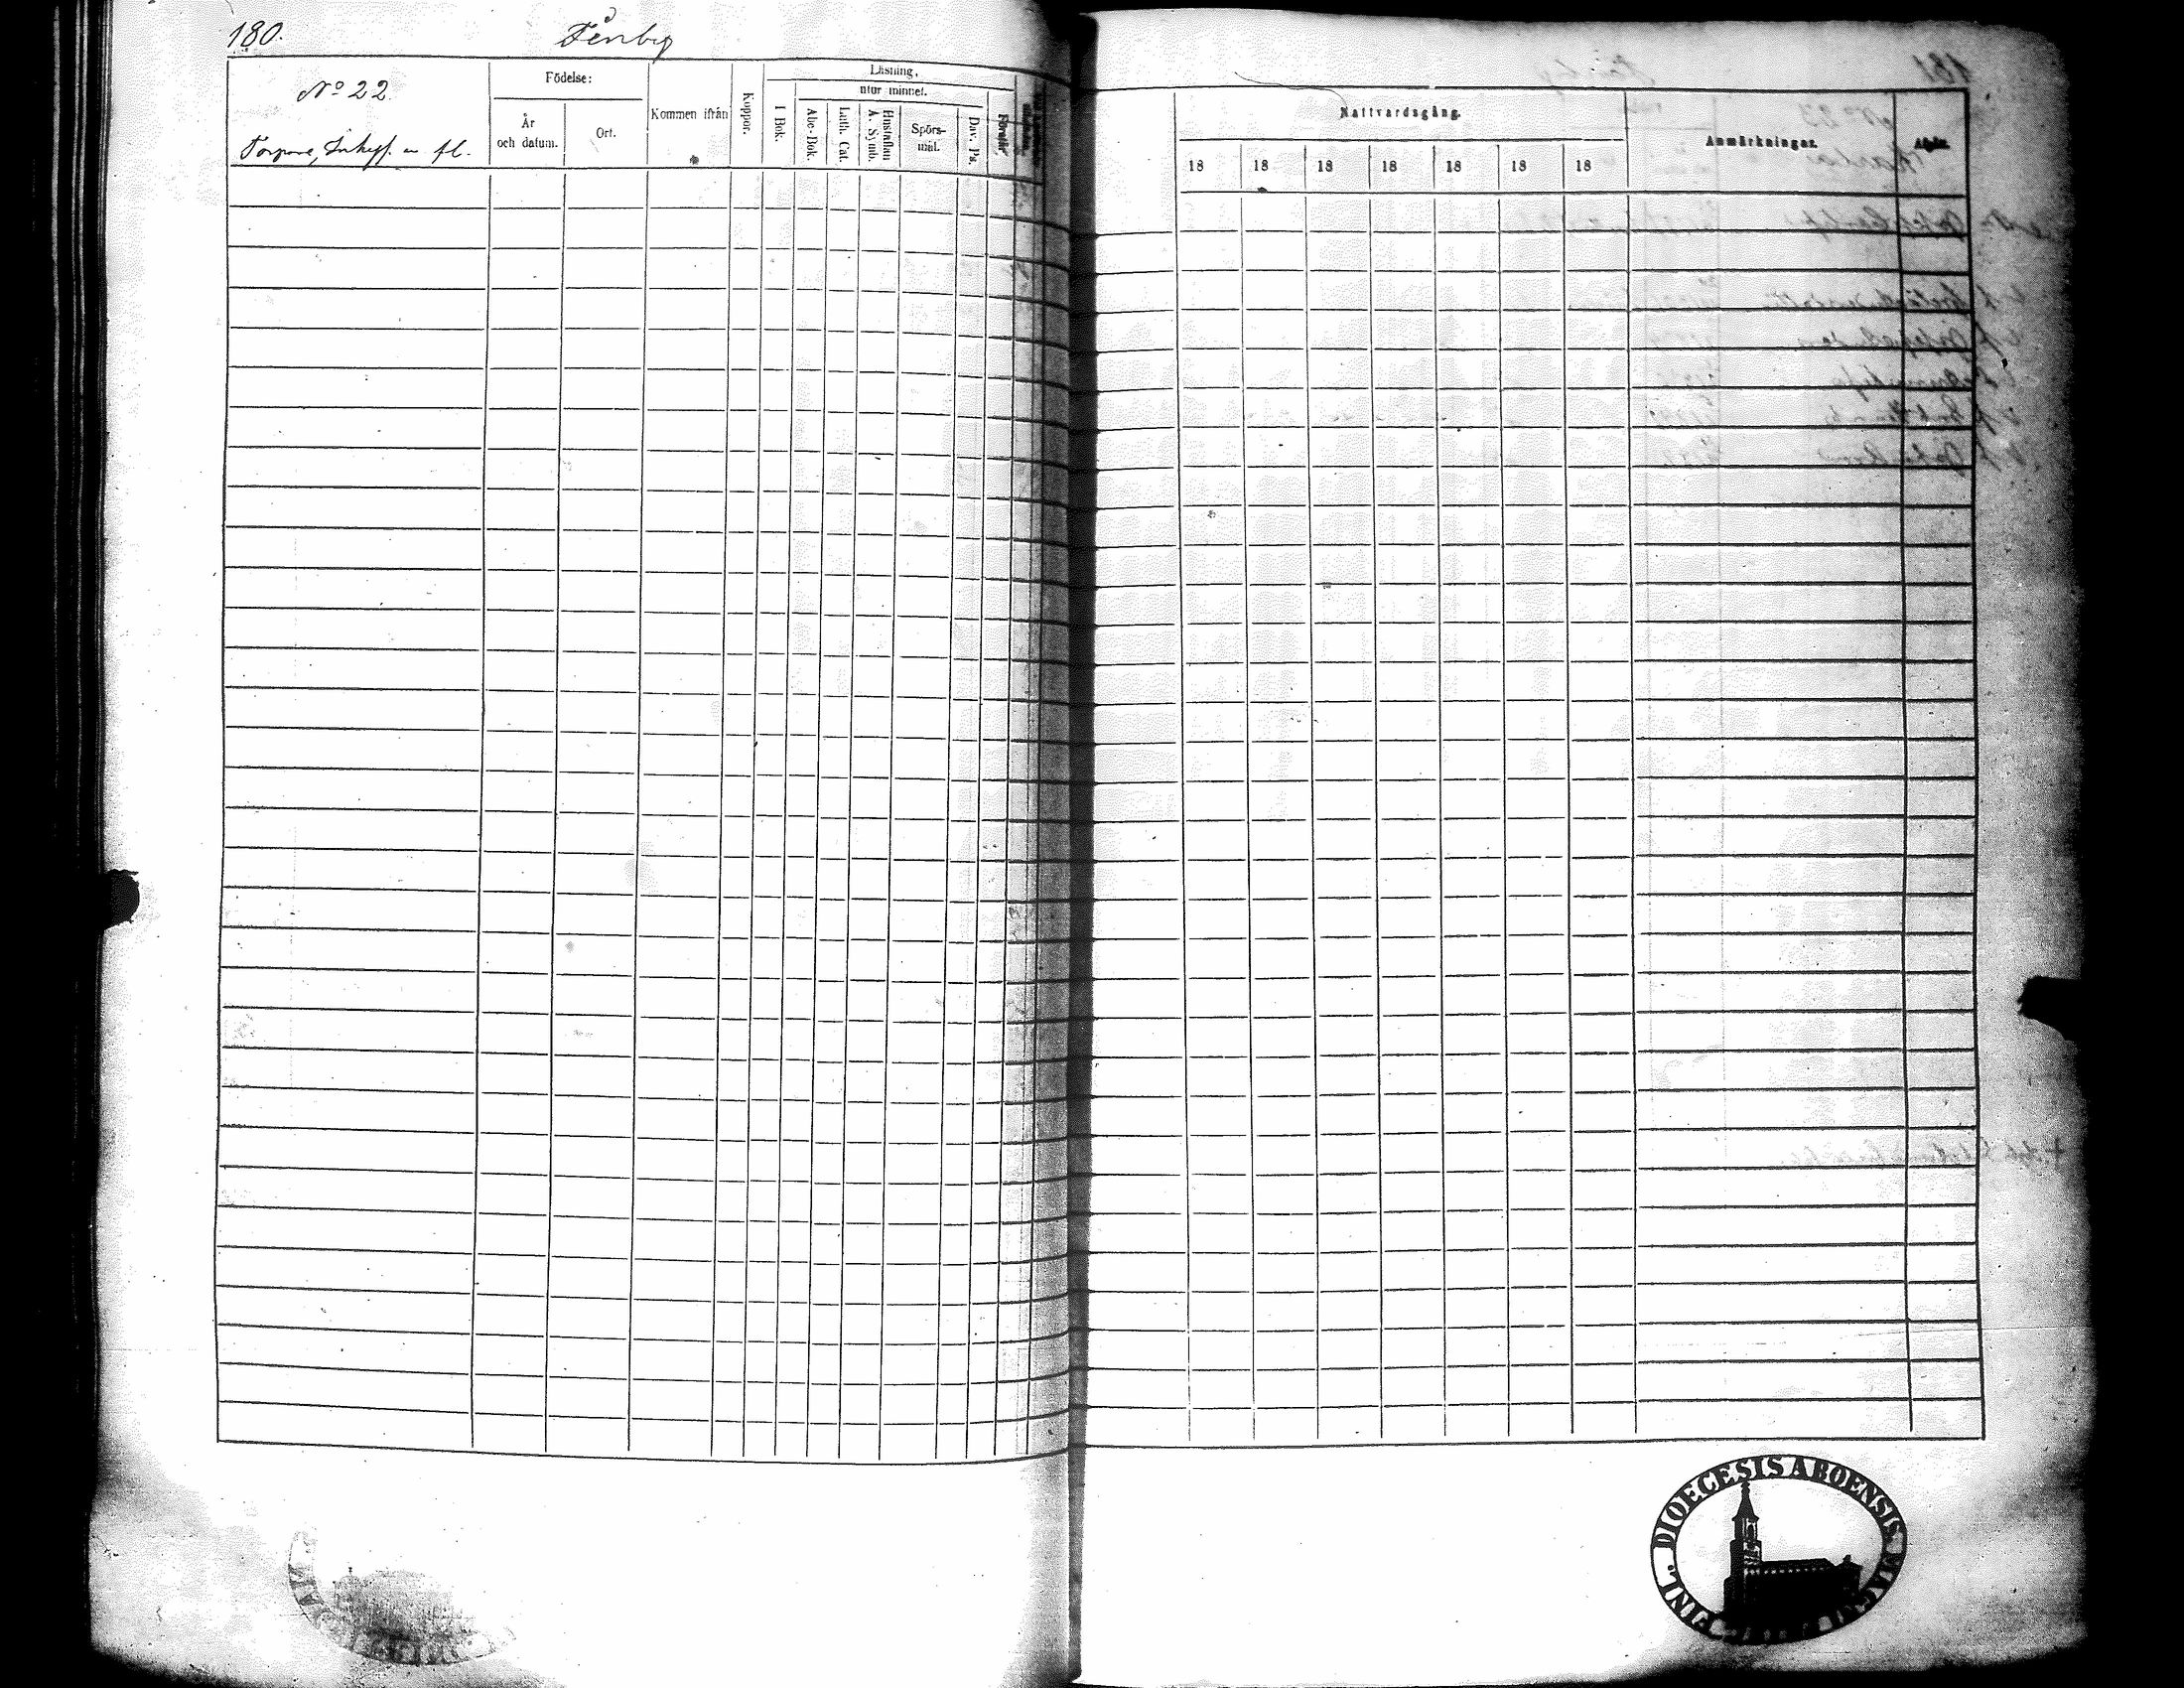 180.
Finby
No 22.
Torpare, Inhys. m fl.
Födelse:
År
och datum.
Ort.
Kommen ifrån
Koppor.
Läsning,
I Bok.
utur minnet.
Abc-Bok.
Luth. Cat.
Hustaflan
A. Symb.
Spörs-
mål.
Dav. Ps.
Nattvardsgång.
18 18 18 18 18 18 18
Anmärkningar.
DIOECESIS ABOENSIS